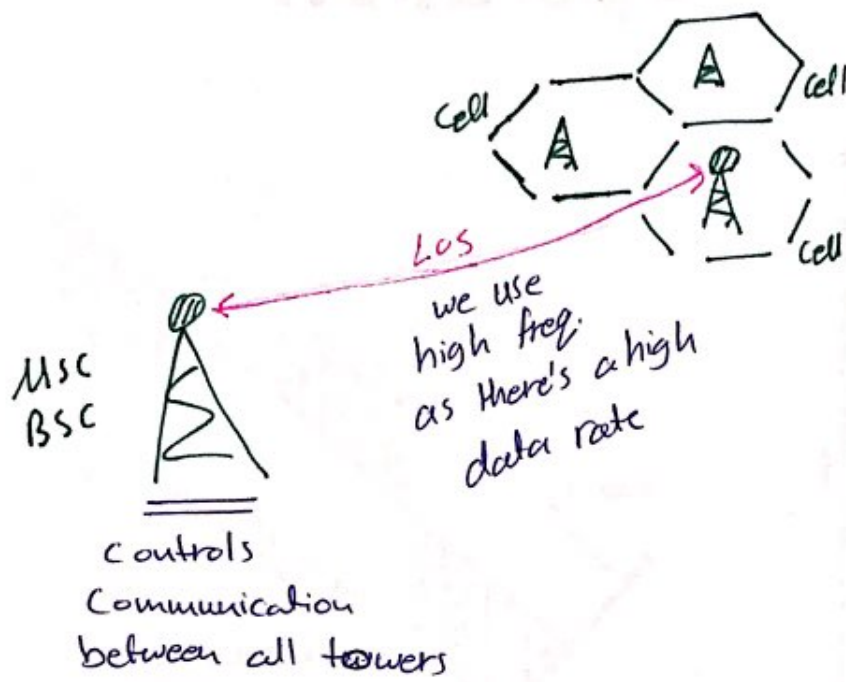 Cell
Cell
Cell
LOS
we use
high freq.
as there's a high
data rate
MSC
BSC
Controls
Communication
between all towers